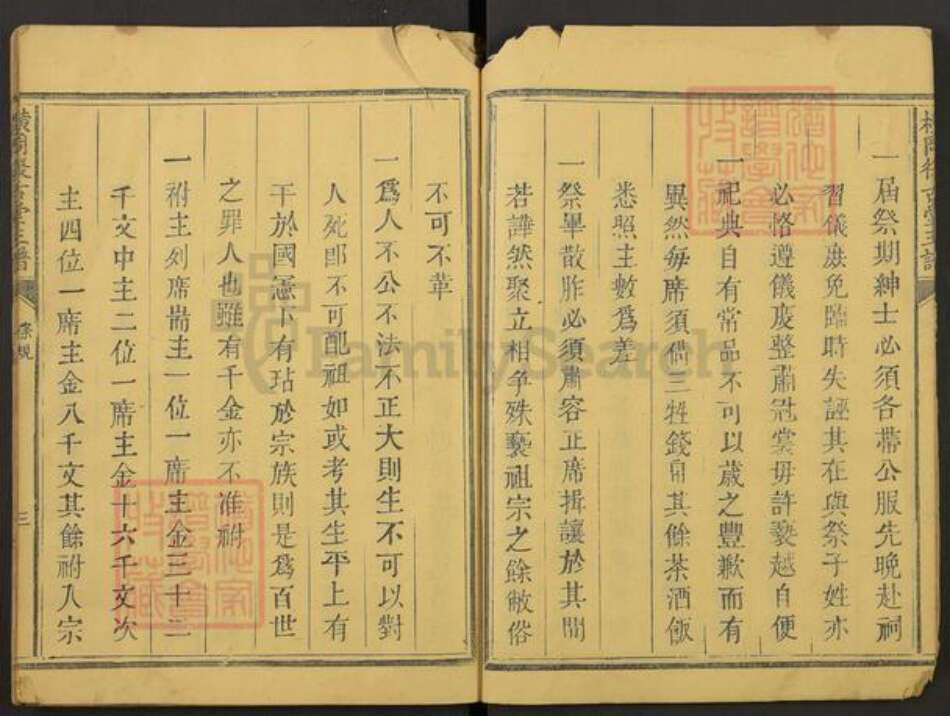 一屆祭期紳士必須各帶公服先晚赴祠
習儀庶免臨時失誤其在與祭子姓亦
必恪遵儀度整肅冠裳毋許褻越自便
一祀典自有常品不可以歲之豐歉而有
異然每席須備三牲錢帛其餘茶酒飯
悉照主數爲差
一祭畢散胙必須肅容正席揖讓於其間
若譁然聚立相爭殊褻祖宗之餘敝俗
不可不革
一爲人不公不法不正大則生不可以對
人死卽不可配祖如或考其生平上有
干於國憲下有玷於宗族則是爲百世
之罪人也雖有千金亦不准祔
一祔主列席耑主一位一席主金三十二
千文中主二位一席主金十六千文次
主四位一席主金八千文其餘祔入宗
條規
三
FamilySearch